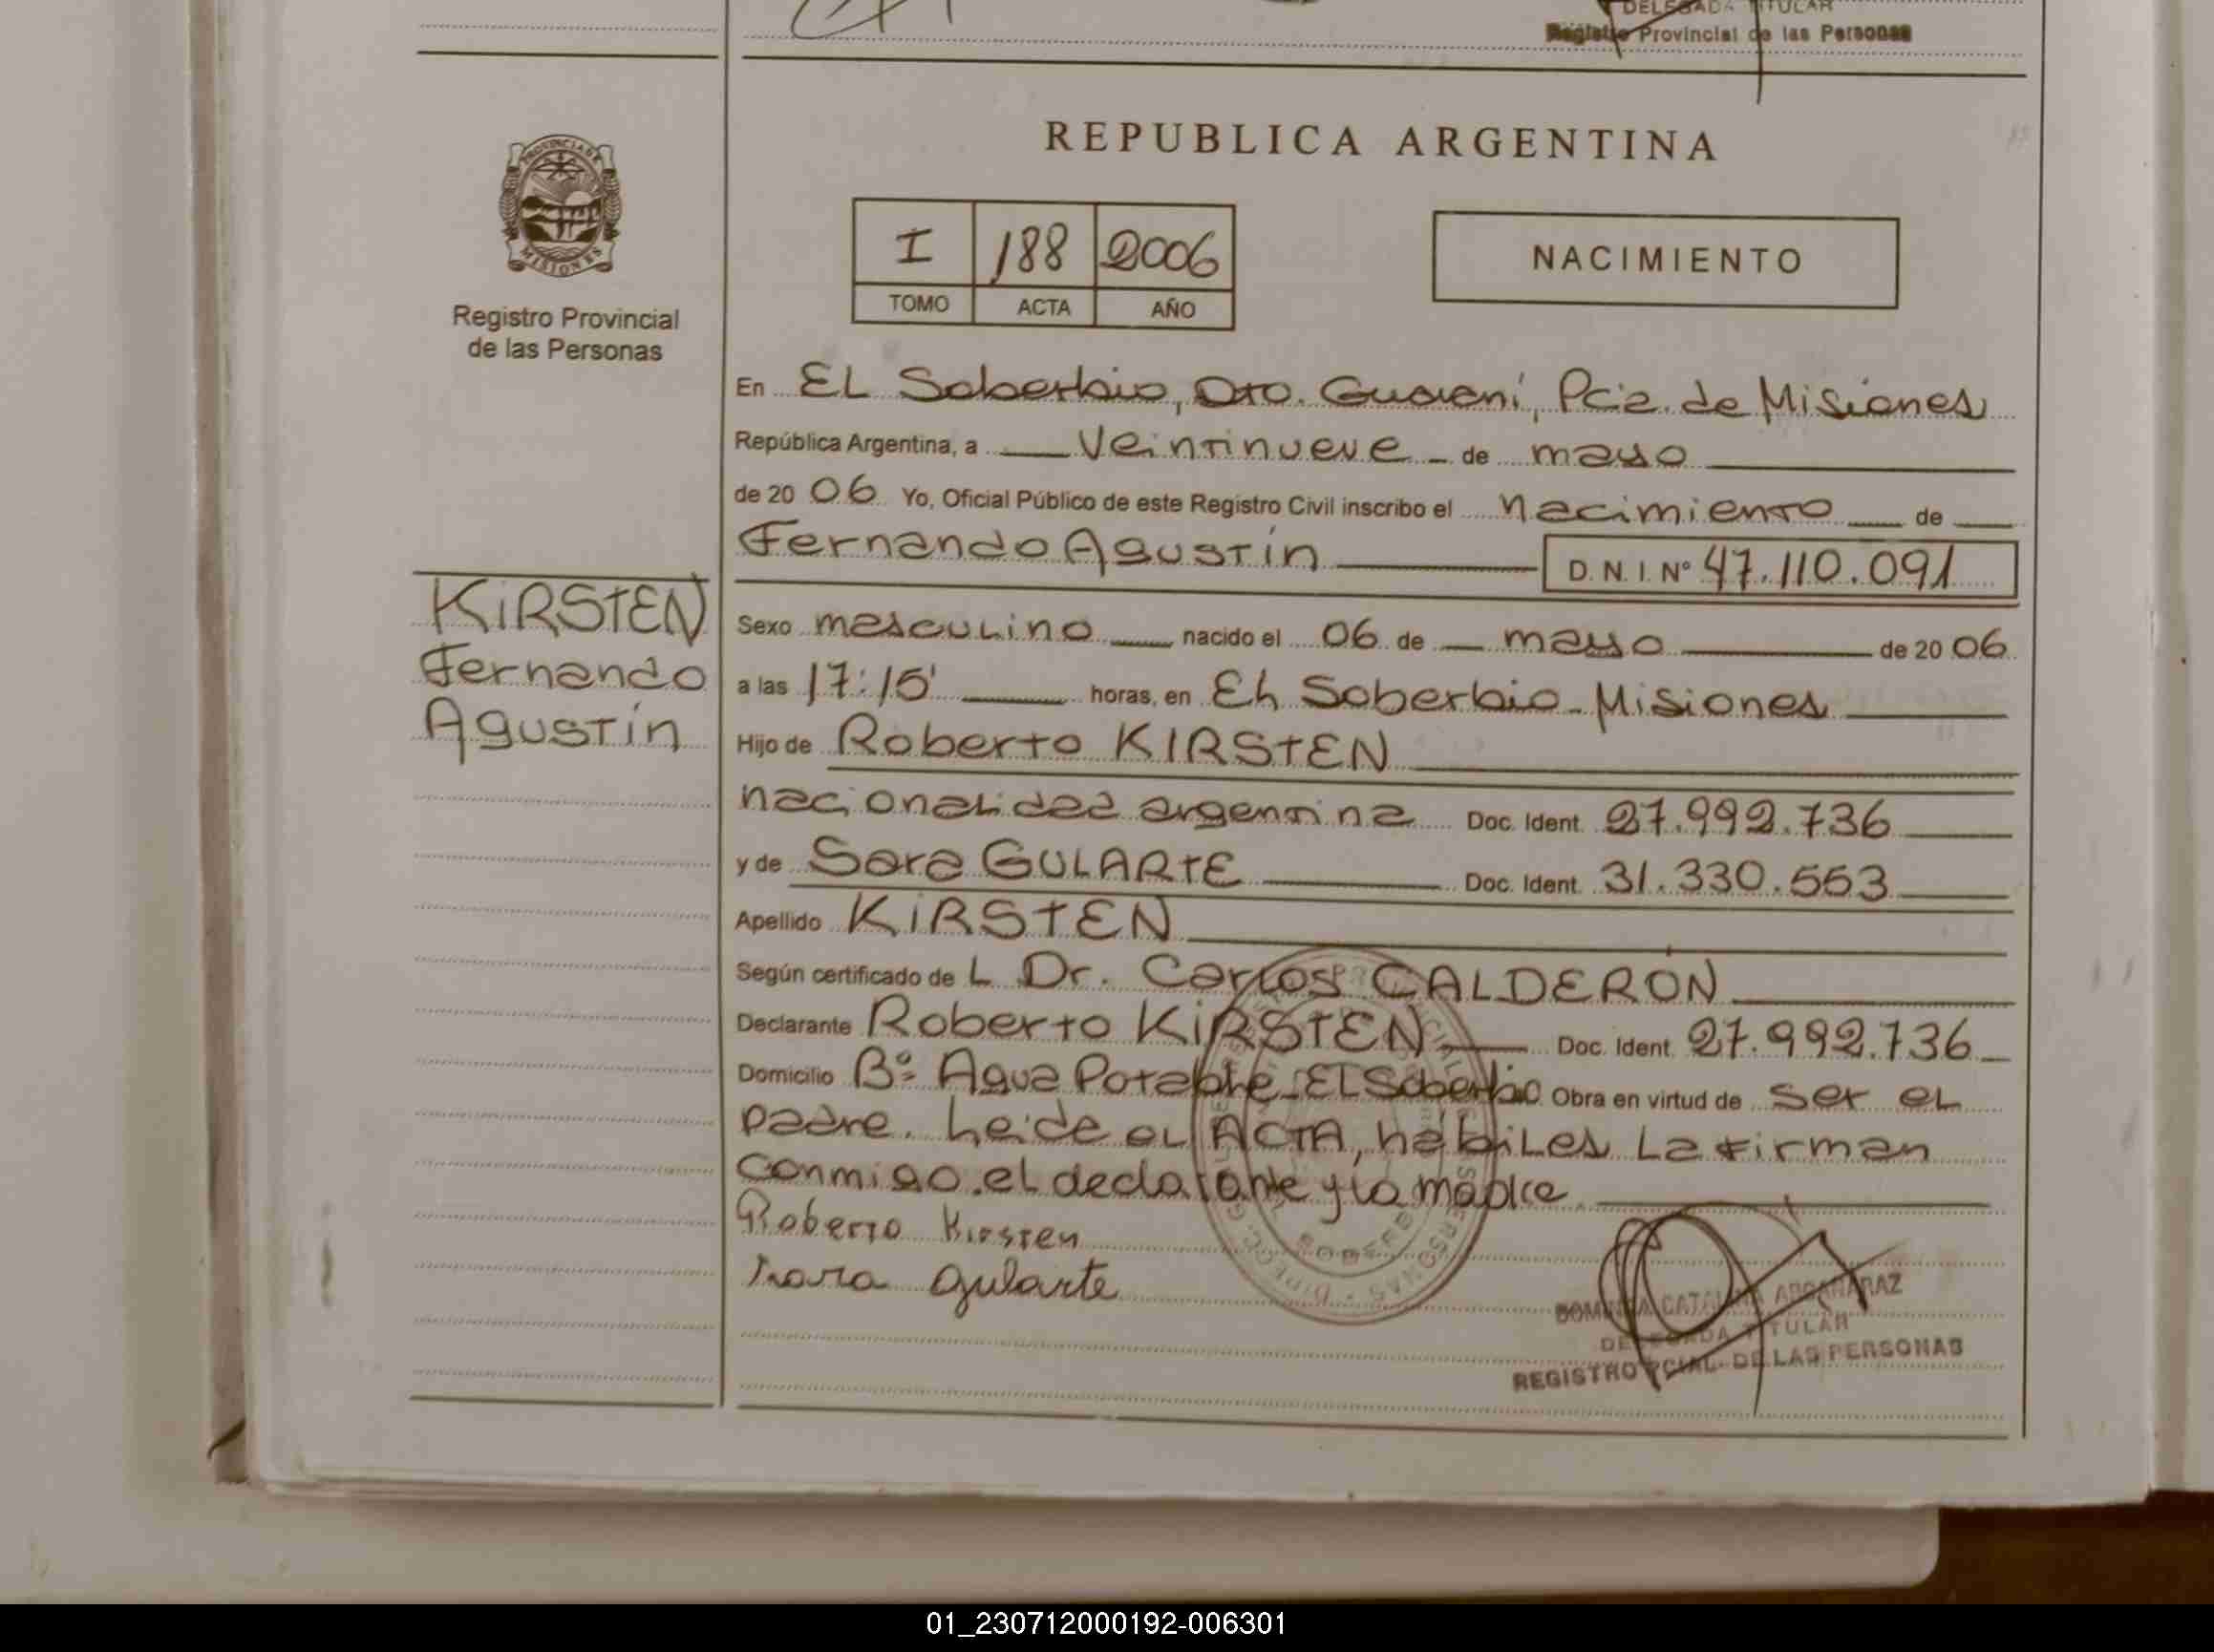 DELEGADA TITULAR
Registro Provincial de las Personas
PROVINCIA DE
MISIONES
Registro Provincial
de las Personas
REPUBLICA ARGENTINA
I 188 2006
TOMO ACTA AÑO
NACIMIENTO
En EL Soberbio, Dto. Guaraní, Pcia. de Misiones
República Argentina, a Veintinueve de mayo
de 20 06 Yo, Oficial Público de este Registro Civil inscribo el nacimiento de
Fernando Agustín D.N.I. Nº 47.110.091
KIRSTEN
Fernando
Agustín
Sexo masculino nacido el 06 de mayo de 20 06
a las 17:15' horas, en EL Soberbio - Misiones
Hijo de Roberto KIRSTEN
nacionalidad argentina Doc. Ident. 27.992.736
y de Sara GULARTE Doc. Ident. 31.330.553
Apellido KIRSTEN
Según certificado de L Dr. Carlos CALDERÓN
Declarante Roberto KIRSTEN Doc. Ident. 27.992.736
Domicilio Bº Agua Potable - El Soberbio Obra en virtud de ser el
padre. Leída el ACTA, hábiles La firman
conmigo el declarante y la madre
Roberto Kirsten
Sara Gularte
CATALINA
DELEGADA TITULAR
REGISTRO PCIAL. DE LAS PERSONAS
01_230712000192-006301